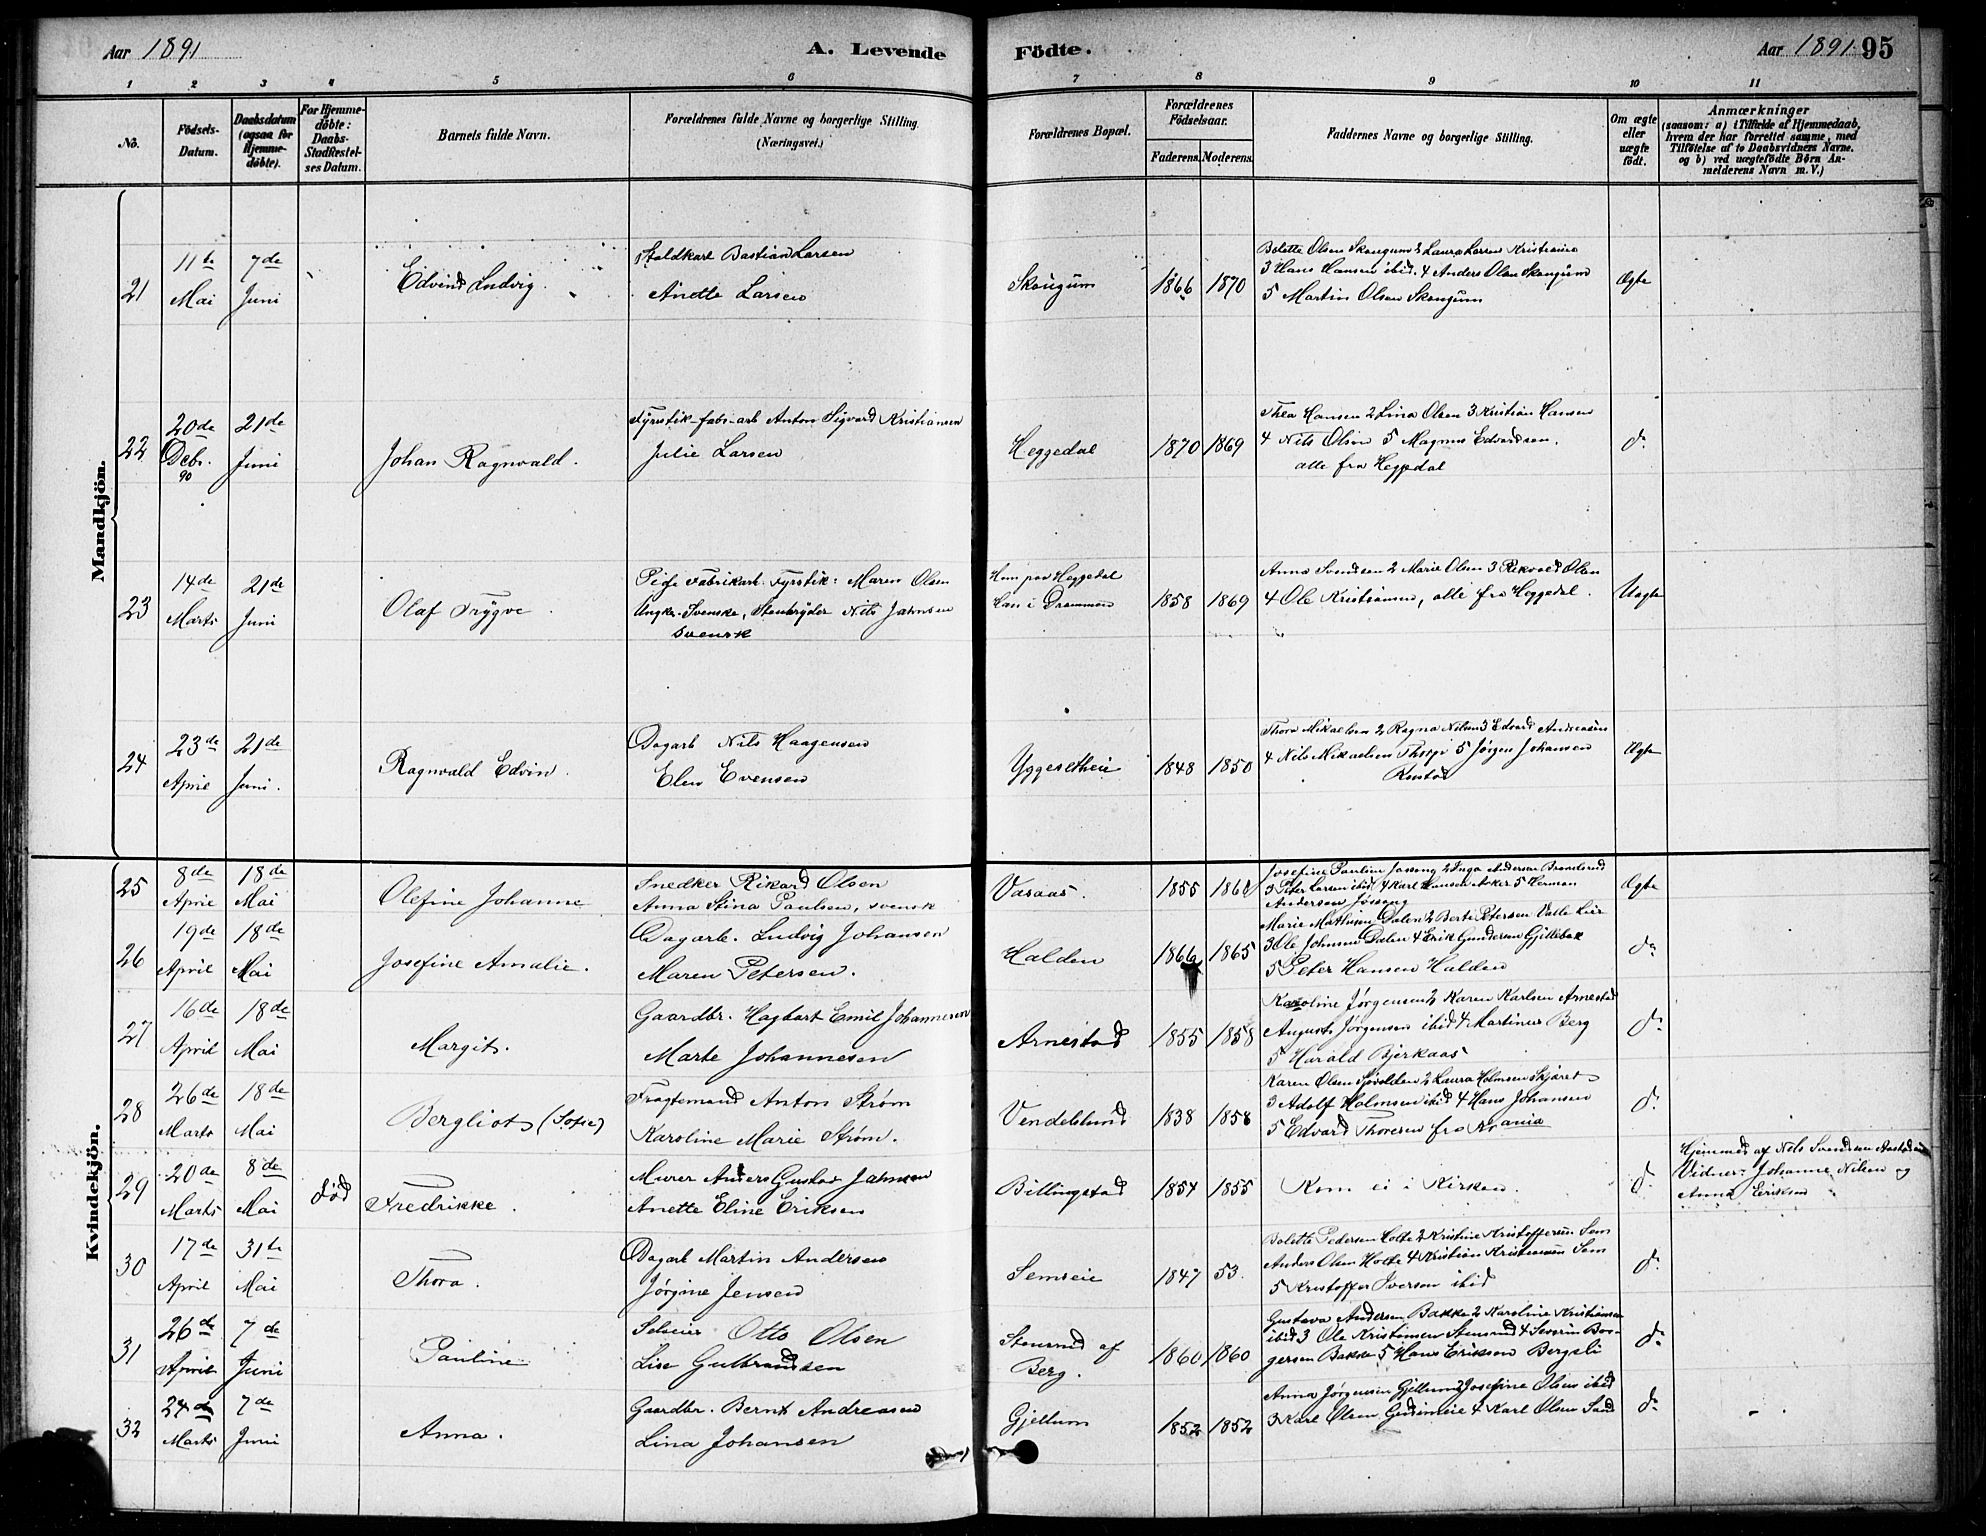 Aar 1891
A. Levende
Födte.
Aar 1891. 95
1 2 3 4 5 6 7 8 9 10 11
No.
Födsels-
Datum.
Daabsdatum
(ogsaa for
Hjemme-
döbte).
For Hjemme-
döbte:
Daabs-
Stadfæstel-
ses Datum.
Barnets fulde Navn.
Forældrenes fulde Navne og borgerlige Stilling.
(Næringsvei.)
Forældrenes Bopæl.
Forældrenes
Födselsaar.
Faderens. Moderens.
Faddernes Navne og borgerlige Stilling.
Om ægte
eller
uægte
födt.
Anmærkninger
(saasom: a) i Tilfælde af Hjemmedaab,
hvem der har forrettet samme, med
Tilföielse af to Daabsvidners Navne,
og b) ved uægtefödte Börn An-
melderens Navn m. V.)
Mandkjön.
21
11te
Mai
7de
Juni
Edvind Ludvig.
Staldkarl Bastian Larsen
Anette Larsen
Skougum
1866
1870
Bolette Olsen Skougum 2 Laura Larsen Kristiania
3 Hans Hansen ibid. 4 Anders Olsen Skougum
5 Martin Olsen Skougum
Ægte
22
20de
Decbr.
90
21de
Juni
Johan Ragnvald.
Fyrstik-fabr-arb Anton Sigvard Kristiansen
Julie Larsen
Heggedal
1870
1869
Thea Hansen 2 Lina Olsen 3 Kristian Hansen
4 Nils Olsen 5 Magnus Edvardsen.
alle fra Heggedal
do
23
14de
Marts
21de
Juni
Olaf Trygve.
Pige Fabrikarb. Fyrstik: Maren Olsen
Ungkr. Svenske, Stenbryder Nils Jahnsen
svensk
Hun paa Heggedal
Han i Drammen
1858
1869
Anna Svendsen 2 Marie Olsen 3 Rikvald Olsen
4 Ole Kristiansen, alle fra Heggedal.
Uægte
24
23de
April
21de
Juni.
Ragnvald Edvin.
Dagarb Nils Haagensen
Elen Evensen
Yggeseteie
1848
1850
Thora Mikaelsen 2 Ragna Nilsen 3 Edvard Andreassen
4 Nils Mikaelsen Thorp 5 Jørgen Johansen
Rustad
Ægte
Kvindekjön.
25
8de
April
18de
Mai
Olefine Johanne
Snedker Rikard Olsen
Anna Stina Paulsen, svensk
Vasaas.
1855
1862
Josefine Paulsen Jøssong 2 Inga Andersen Brendsrud
3 Peter Larsen ibid 4 Karl Hansen Asker 5 Herman
Andersen Jøssong
Ægte
26
19de
April
18de
Mai
Josefine Amalie.
Dagarb. Ludvig Johansen
Maren Petersen.
Halden
1866
1865
Marie Mathisen Dalen 2 Berte Petersen Valle Lier
3 Ole Johnsen Dalen 4 Erik Gundersen Gjellebæk
5 Peter Hansen Halden
do
27
16de
April
18de
Mai
Margit.
Gaardbr. Hagbart Emil Johannesen
Marte Johannesen
Arnestad
1855
1858
Karoline Jørgensen 2 Karen Karlsen Arnestad
August Jørgensen ibid 4 Martinus Berg
5 Harald Bjerkaas
do
28
26de
Marts
18de
Mai
Bergliot (Sofie)
Fragtemand Anton Strøm
Karoline Marie Strøm.
Vendelsund
1838
1858
Karen Olsen Sjøvolden 2 Laura Holmsen Skjæret
3 Adolf Holmsen ibid 4 Hans Johansen
5 Edvard Thoresen fra Krania
do
29
20de
Marts
8de
Mai
død
Fredrikke.
Murer Anders Gustav Jahnsen
Anette Eline Eriksen
Billingstad
1854
1855
Kom ei i Kirken.
do
Hjemmed af Nils Svendsen
Vidner: Johanne Nilsen og
Anna Eriksen
30
17de
April
31te
Mai
Thora.
Dagarb Martin Andersen
Jørgine Jensen
Semseie
1847
53.
Bolette Pedersen Holte 2 Kristine Kristoffersen Sem
Anders Olsen Holte 4 Kristian Kristiansen Sem
5 Kristoffer Iversen ibid
do
31
26de
April
7de
Juni
Pauline
Selveier Otto Olsen
Lise Gulbrandsen
Stensrud af
Berg.
1860
1860
Gustava Andersen Bakke 2 Karoline Kristiansen
ibid 3 Ole Kristiansen Stensrud 4 Severin Bør-
gersen Bakke 5 Hans Eriksen Bergsli
do
32
24de
Marts
7de
Juni
Anna.
Gaardbr. Bernt Andreasen
Lina Johansen
Gjellum
1852
1852
Anna Jørgensen Gjellum 2 Josefine Olsen ibid
3 Karl Olsen Gudimeie 4 Karl Olsen Sand
do